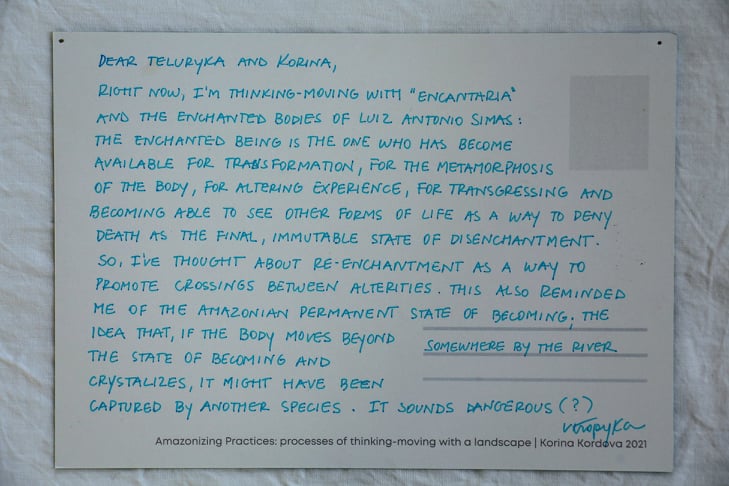 DEAR TELURYKA AND KORINA,
RIGHT NOW, I'M THINKING-MOVING WITH "ENCANTARIA"
AND THE ENCHANTED BODIES OF LUIZ ANTONIO SIMAS:
THE ENCHANTED BEING IS THE ONE WHO HAS BECOME
AVAILABLE FOR TRANSFORMATION, FOR THE METAMORPHOSIS
OF THE BODY, FOR ALTERING EXPERIENCE, FOR TRANSGRESSING AND
BECOMING ABLE TO SEE OTHER FORMS OF LIFE AS A WAY TO DENY
DEATH AS THE FINAL, IMMUTABLE STATE OF DISENCHANTMENT.
SO, I'VE THOUGHT ABOUT RE-ENCHANTMENT AS A WAY TO
PROMOTE CROSSINGS BETWEEN ALTERITIES. THIS ALSO REMINDED
ME OF THE AMAZONIAN PERMANENT STATE OF BECOMING; THE
IDEA THAT, IF THE BODY MOVES BEYOND
THE STATE OF BECOMING AND
CRYSTALIZES, IT MIGHT HAVE BEEN
CAPTURED BY ANOTHER SPECIES. IT SOUNDS DANGEROUS (?)
SOMEWHERE BY THE RIVER
Amazonizing Practices: processes of thinking-moving with a landscape | Korina Kordova 2021